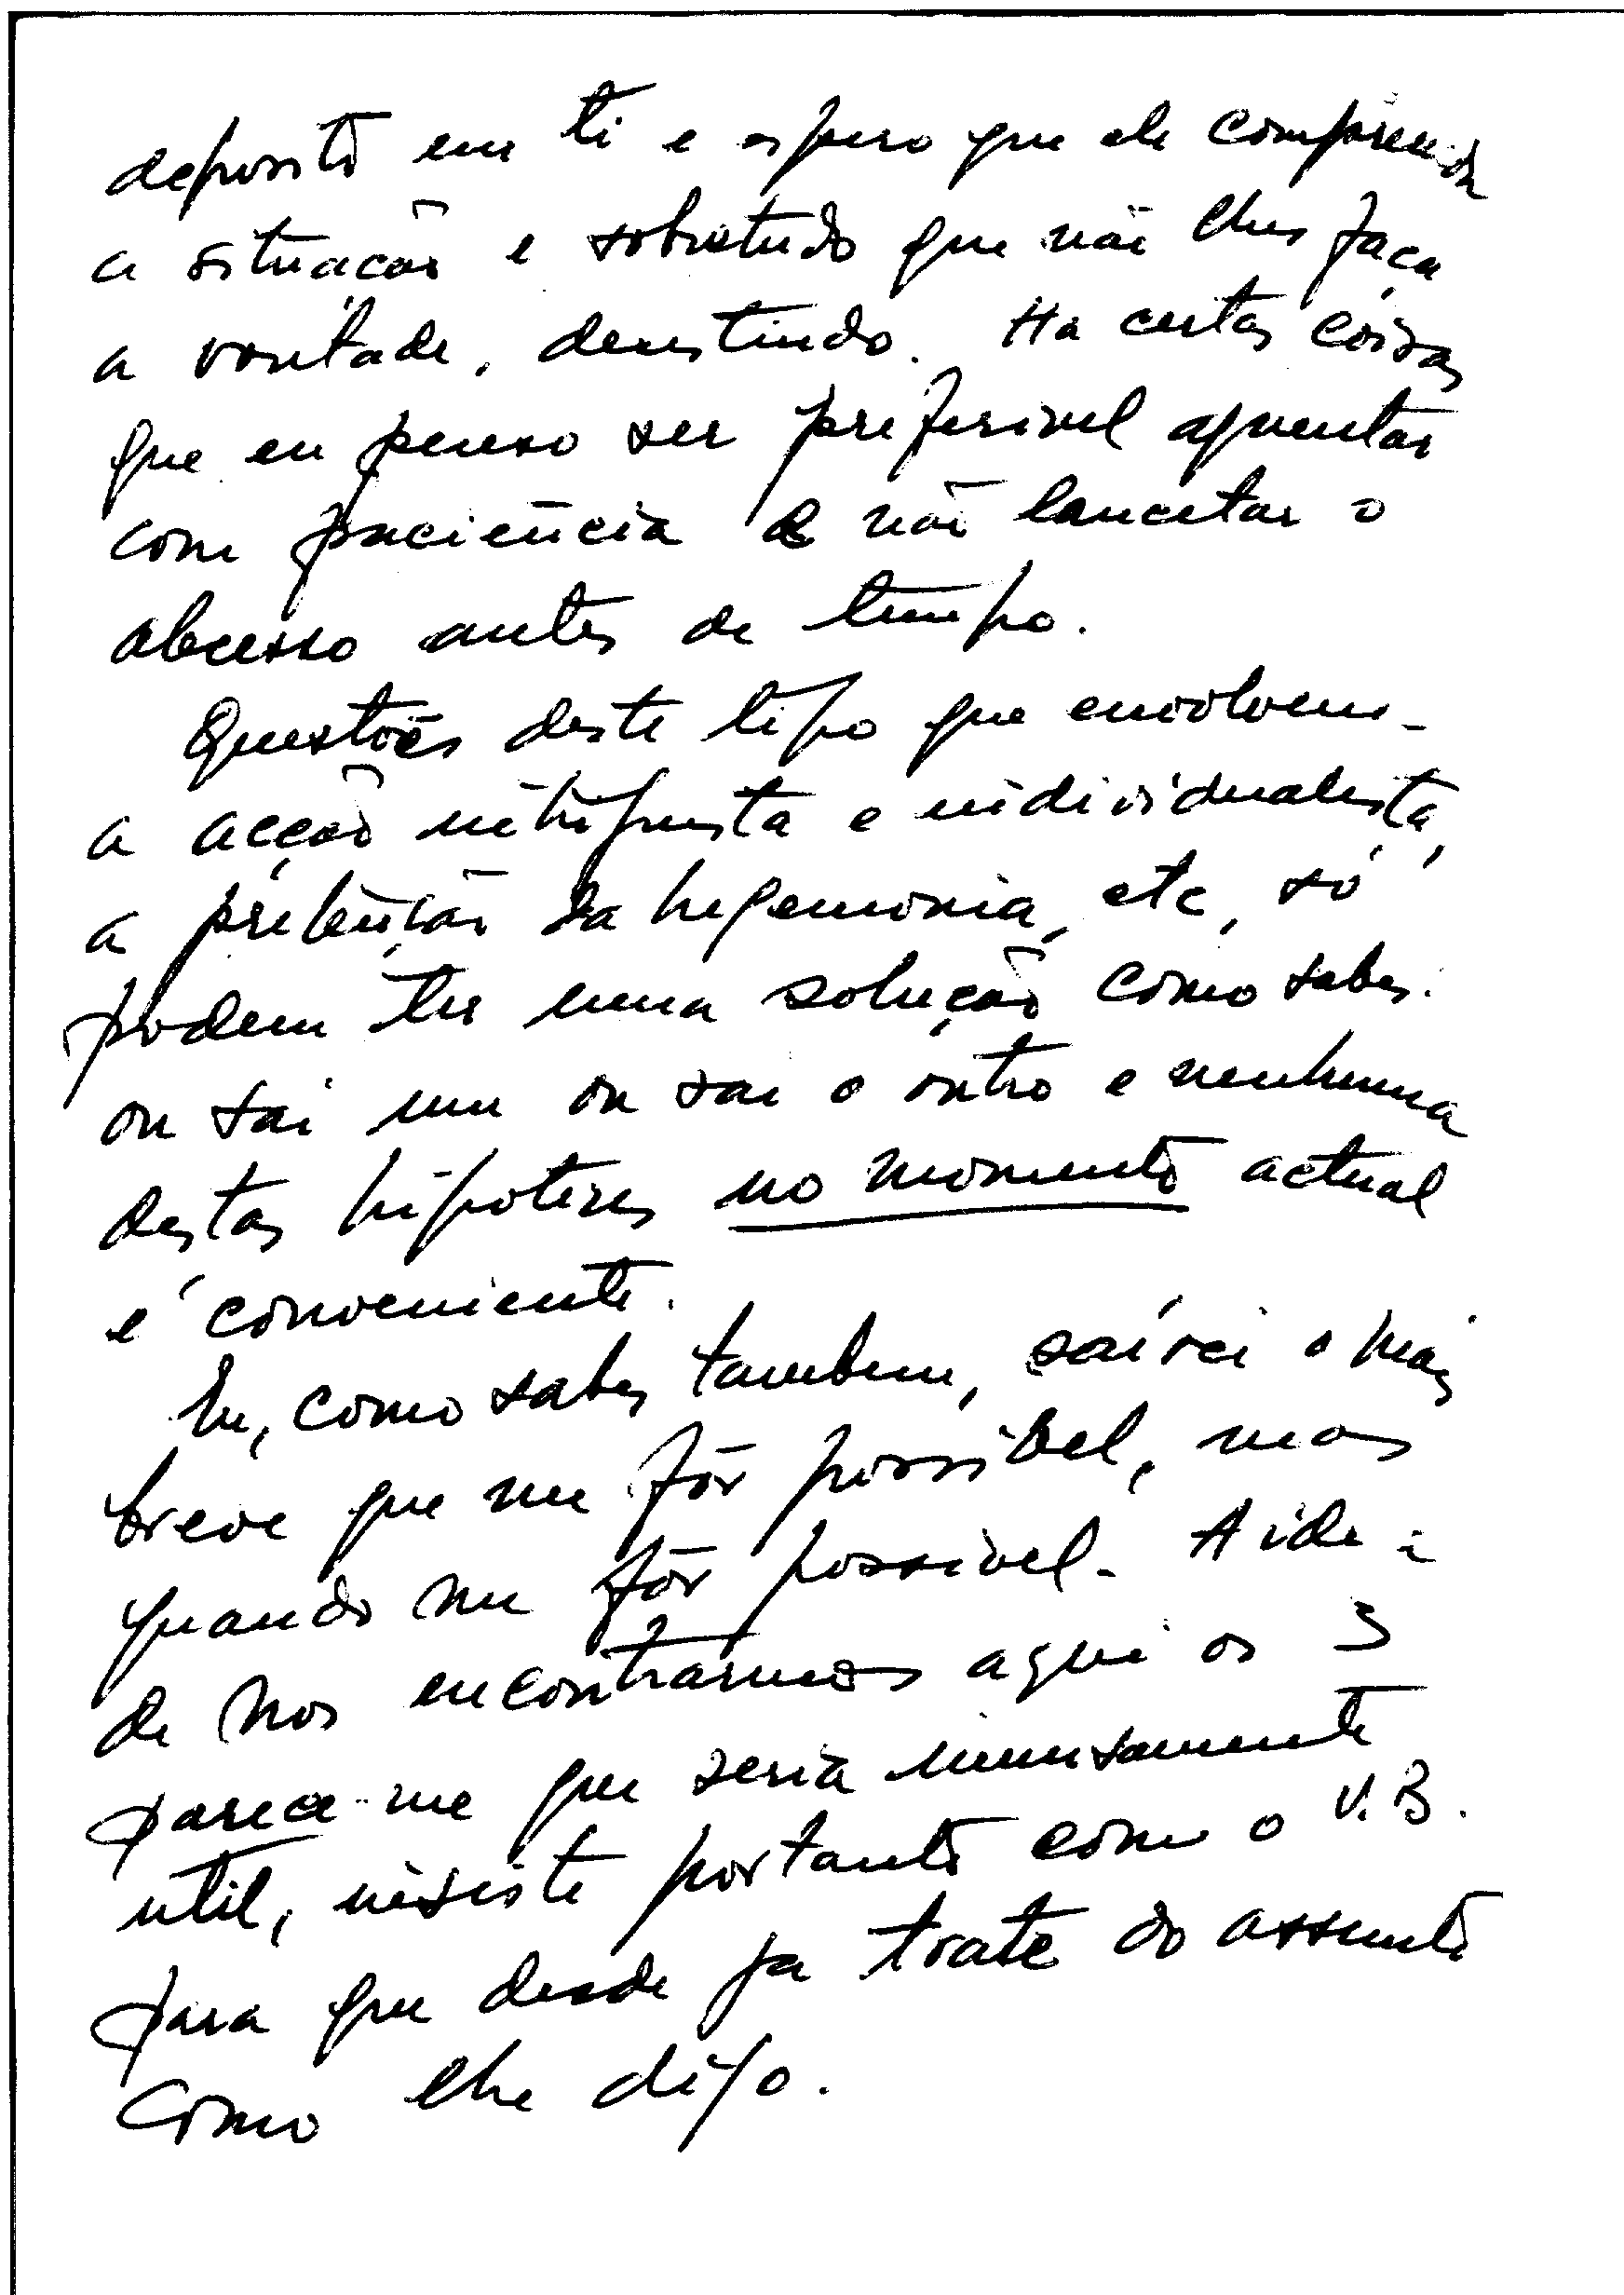 deposito em ti e espero que ele compreenda
a situação e sobretudo que não lhes faça
a vontade, desistindo. Ha certas coisas
que eu penso ser preferivel aguentar
com paciência e não lancetar o
abcesso antes de tempo.
Questões deste tipo que envolvem
a acção intriguista e individualista,
a pretenção da hegemonia, etc, só
podem ter uma solução como sabes:
ou sai um ou sai o outro e nenhuma
destas hipoteses no momento actual
é conveniente.
Eu, como sabes tambem, saírei o mais
breve que me fôr possível, mas
quando me fôr possivel. A ideia
de nos encontrarmos aqui os 3
parece-me que seria imensamente
util, insiste portanto com o V. B.
para que desde ja trate do assunto
como lhe digo.